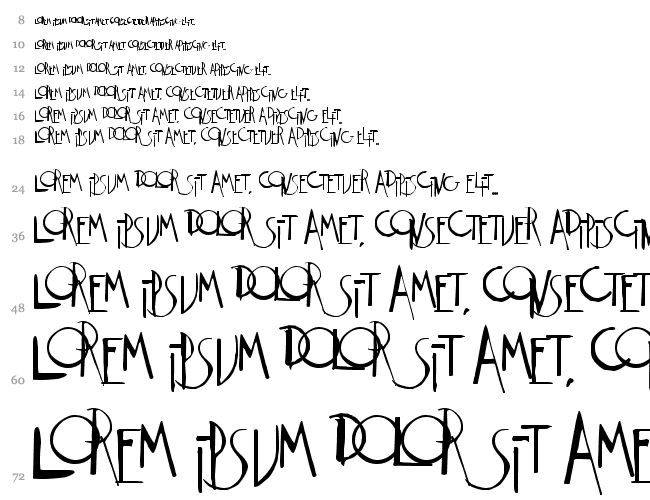 8 Lorem ipsum dolor sit amet, consectetuer adipiscing elit.
10 Lorem ipsum dolor sit amet, consectetuer adipiscing elit.
12 Lorem ipsum dolor sit amet, consectetuer adipiscing elit.
14 Lorem ipsum dolor sit amet, consectetuer adipiscing elit.
16 Lorem ipsum dolor sit amet, consectetuer adipiscing elit.
18 Lorem ipsum dolor sit amet, consectetuer adipiscing elit.
24 Lorem ipsum dolor sit amet, consectetuer adipiscing elit.
36 Lorem ipsum dolor sit amet, consectetuer adipiscin
48 Lorem ipsum dolor sit amet, consectet
60 Lorem ipsum dolor sit amet, co
72 Lorem ipsum dolor sit ame